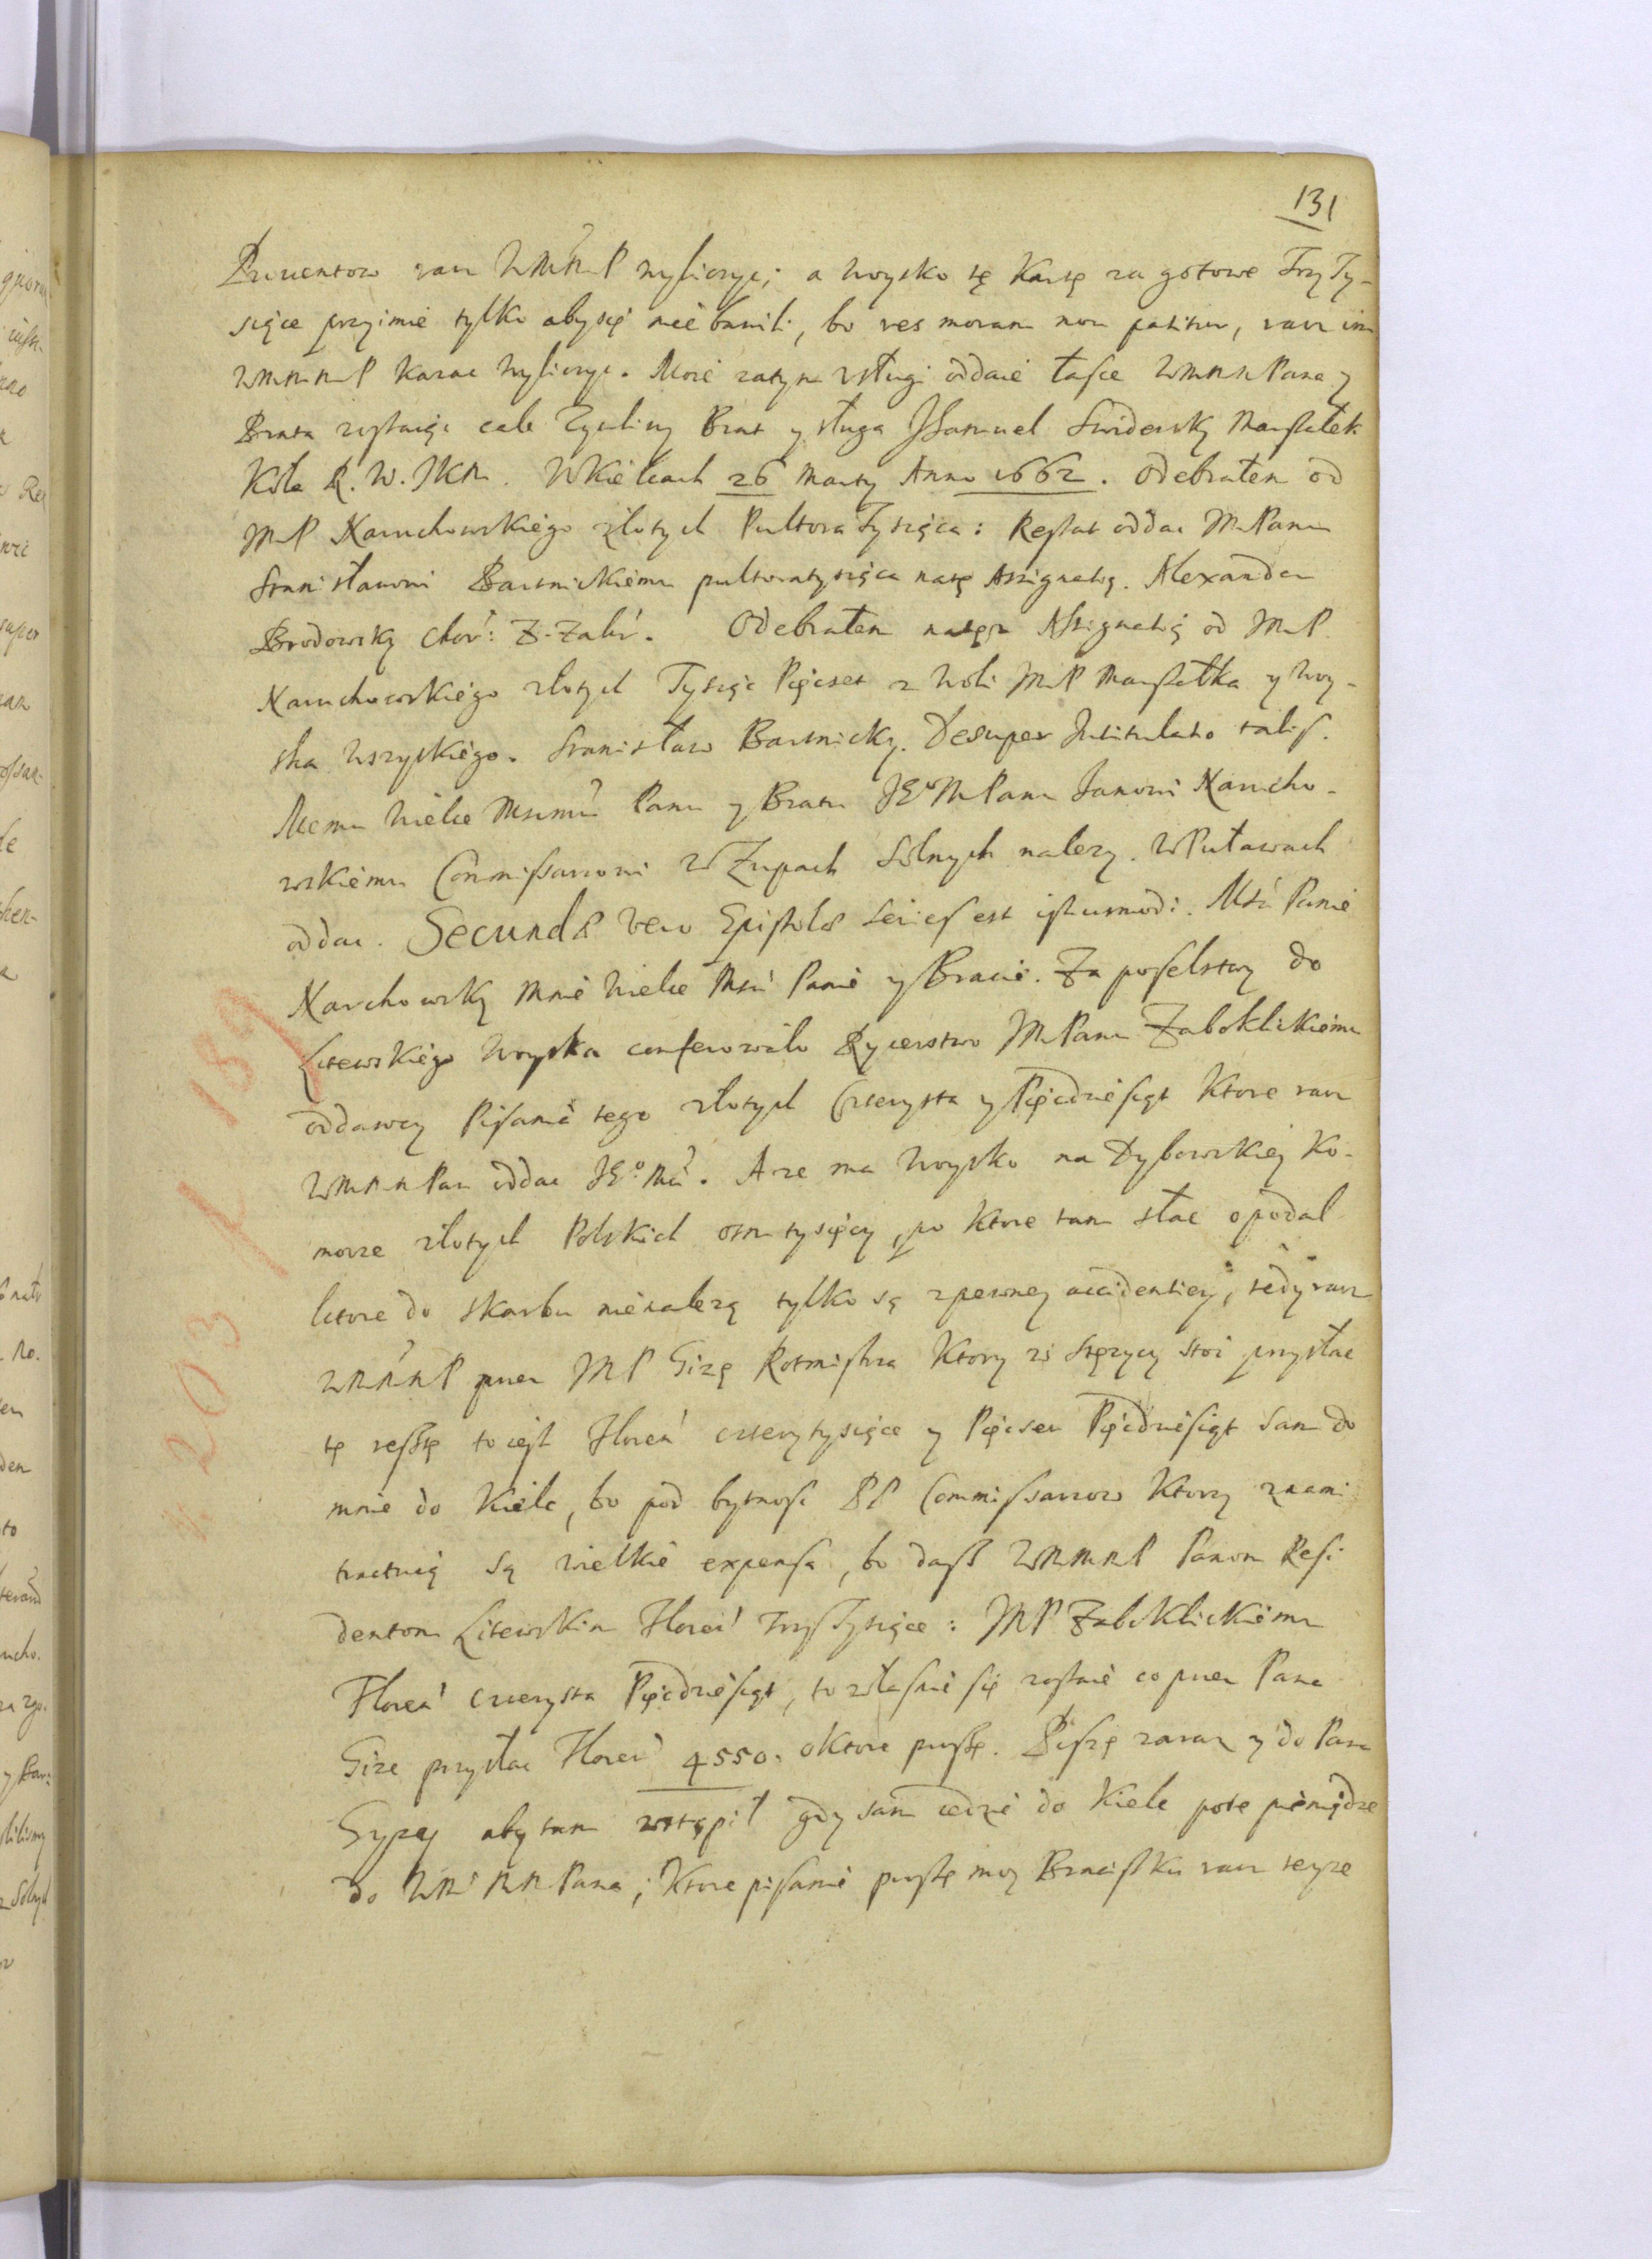 131
Prouentow racz WMMP wyliczyć; a woysko tę Kartę za gotowe Trzy Ty-
siące przyimie tylko aby się nie bawili, bo res moram non patitur, racz im
WMMMP Kazac wyliczyc. Moie zatym Vsługi oddaie łasce WMMPana y
Brata zostaiąc cale Zyczliwy Brat y sługa JSamuel Swiderský Marszałek
Koła R. W. JKM. WKielcach 26 Marty Anno 1662. Odebrałem od
MP Naruchowskiego złotych Pułtora Tysiąca: Restat oddac MPanu
Stanisławowi Bartnickiemu pułtoratysiąca natę Assignatią. Alexander
Brodowský Chor: Z. Odebrałem Assignatią od MP
Naruchowskiego złotych Tysiąc Pięcset z Woli MP Marszałka y Woy-
ska wszyskiego. Stanisław Bartnický. Desuper Intitulatio talis.
Memu Wielce Msciwemu Panu y Bratu JEoMPanu Janowi Narucho-
wskiemu Commissarzowi W Zupach Solnych nalezy. WPuławach
oddac. Secundæ vero Epistolæ series est istiusmodi. Msci Panie
Narchowský Mnie Wielce Msci Panie y Bracie. Za poselstwy do
Litewskiego Woyska conferowało Rycerstwo MPanu Zaboklickiemu
oddawcy Pisania tego złotych Czterysta y Pięcdziesiąt Ktore racz
WMMPan oddac JEo Mci. A ze ma Woysko na Dybowskiey Ko-
morze złotych Polskich osm tysięcy, po Ktore tam słac opodal
ktore do skarbu nienalezą tylko są zpewney accidentiey, tedy racz
WMMP przez MP Gizę Rotmistrza Ktory w Stęzycy stoi przysłac
tę resztę to iest Floren czterytysiące y Pięcset Pięcdziesiąt sam do
mnie do Kielc, bo pod bytnosc PP Commissarzow Ktorzy znami
tractuią są wielkie expensa, bo dasz WMMMP Panom Resi
dentom Litewskim Floren TrzyTysiące: MP Zaboklickiemu
Floren czterysta Pięcdziesiąt, to własnie się zostanie co przez Pana
Gize przysłac Floren 4550. oktore proszę. Piszę zaraz y do Pana
Gyzey aby tam wstąpił gdy sam iedzie do Kielc pote pieniądze
do WMMPana; Ktore pisanie proszę moy Braciszku racz teyze
f. 203 f 189